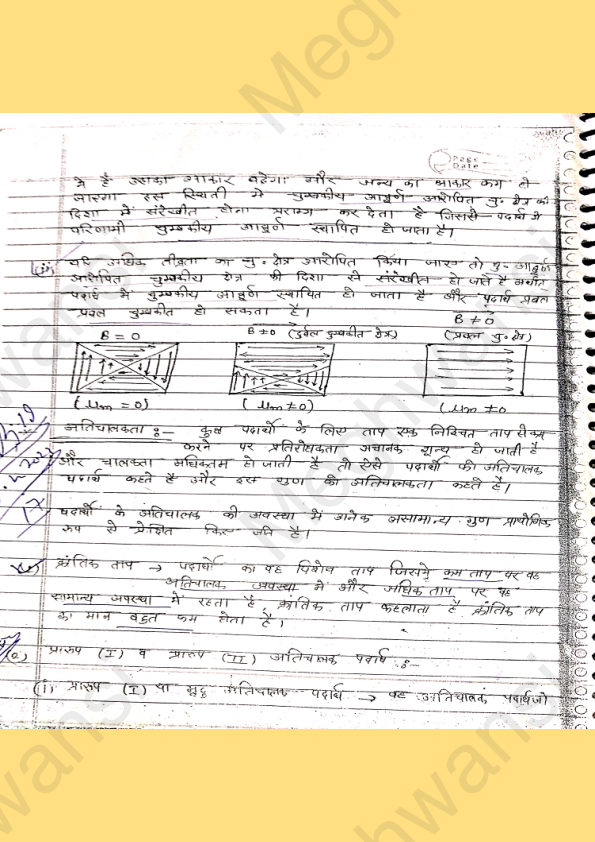 Page
Date
में है उसका आकार बढेगा और अन्य का आकार कम हो
जाएगा इस स्थिती में चुम्बकीय आघूर्ण आरोपित चु० क्षेत्र की
दिशा में संरेखीत होना प्रारम्भ कर देता है जिससे पदार्थ में
परिणामी चुम्बकीय आघूर्ण स्थापित हो जाता है।
यदि अधिक तीव्रता का चु० क्षेत्र आरोपित किया जाए तो चु० आघूर्ण
आरोपित चुम्बकीय क्षेत्र की दिशा से संरेखीत हो जाते है अर्थात
पदार्थ में चुम्बकीय आघूर्ण स्थापित हो जाता है और पदार्थ प्रबल
प्रबल चुम्बकीत हो सकता है।
B ≠ 0
B = 0
B ≠ 0 (दुर्बल चुम्बकीत क्षेत्र)
(प्रबल चु० क्षेत्र)
(μm = 0)
(μm ≠ 0)
(μm ≠ 0
अतिचालकता :- कुछ पदार्थो के लिए ताप एक निश्चित ताप से कम
करने पर प्रतिरोधकता अचानक शून्य हो जाती है
और चालकता अधिकतम हो जाती है तो ऐसे पदार्थो को अतिचालक
पदार्थ कहते है और इस गुण को अतिचालकता कहते है।
पदार्थो के अतिचालक की अवस्था में अनेक असामान्य गुण प्रायोगिक
रूप से प्रेक्षित किए जाते है।
क्रांतिक ताप → पदार्थो का वह विशेष ताप जिससे कम ताप पर वह
अतिचालक अवस्था में और अधिक ताप पर वह
सामान्य अवस्था में रहता है, क्रांतिक ताप कहलाता है क्रांतिक ताप
का मान बहुत कम होता है।
प्रारूप (I) व प्रारूप (II) अतिचालक पदार्थ :-
(i) प्रारूप (I) या मृदु अतिचालक पदार्थ → वह अतिचालक पदार्थ जो
Meghwansi